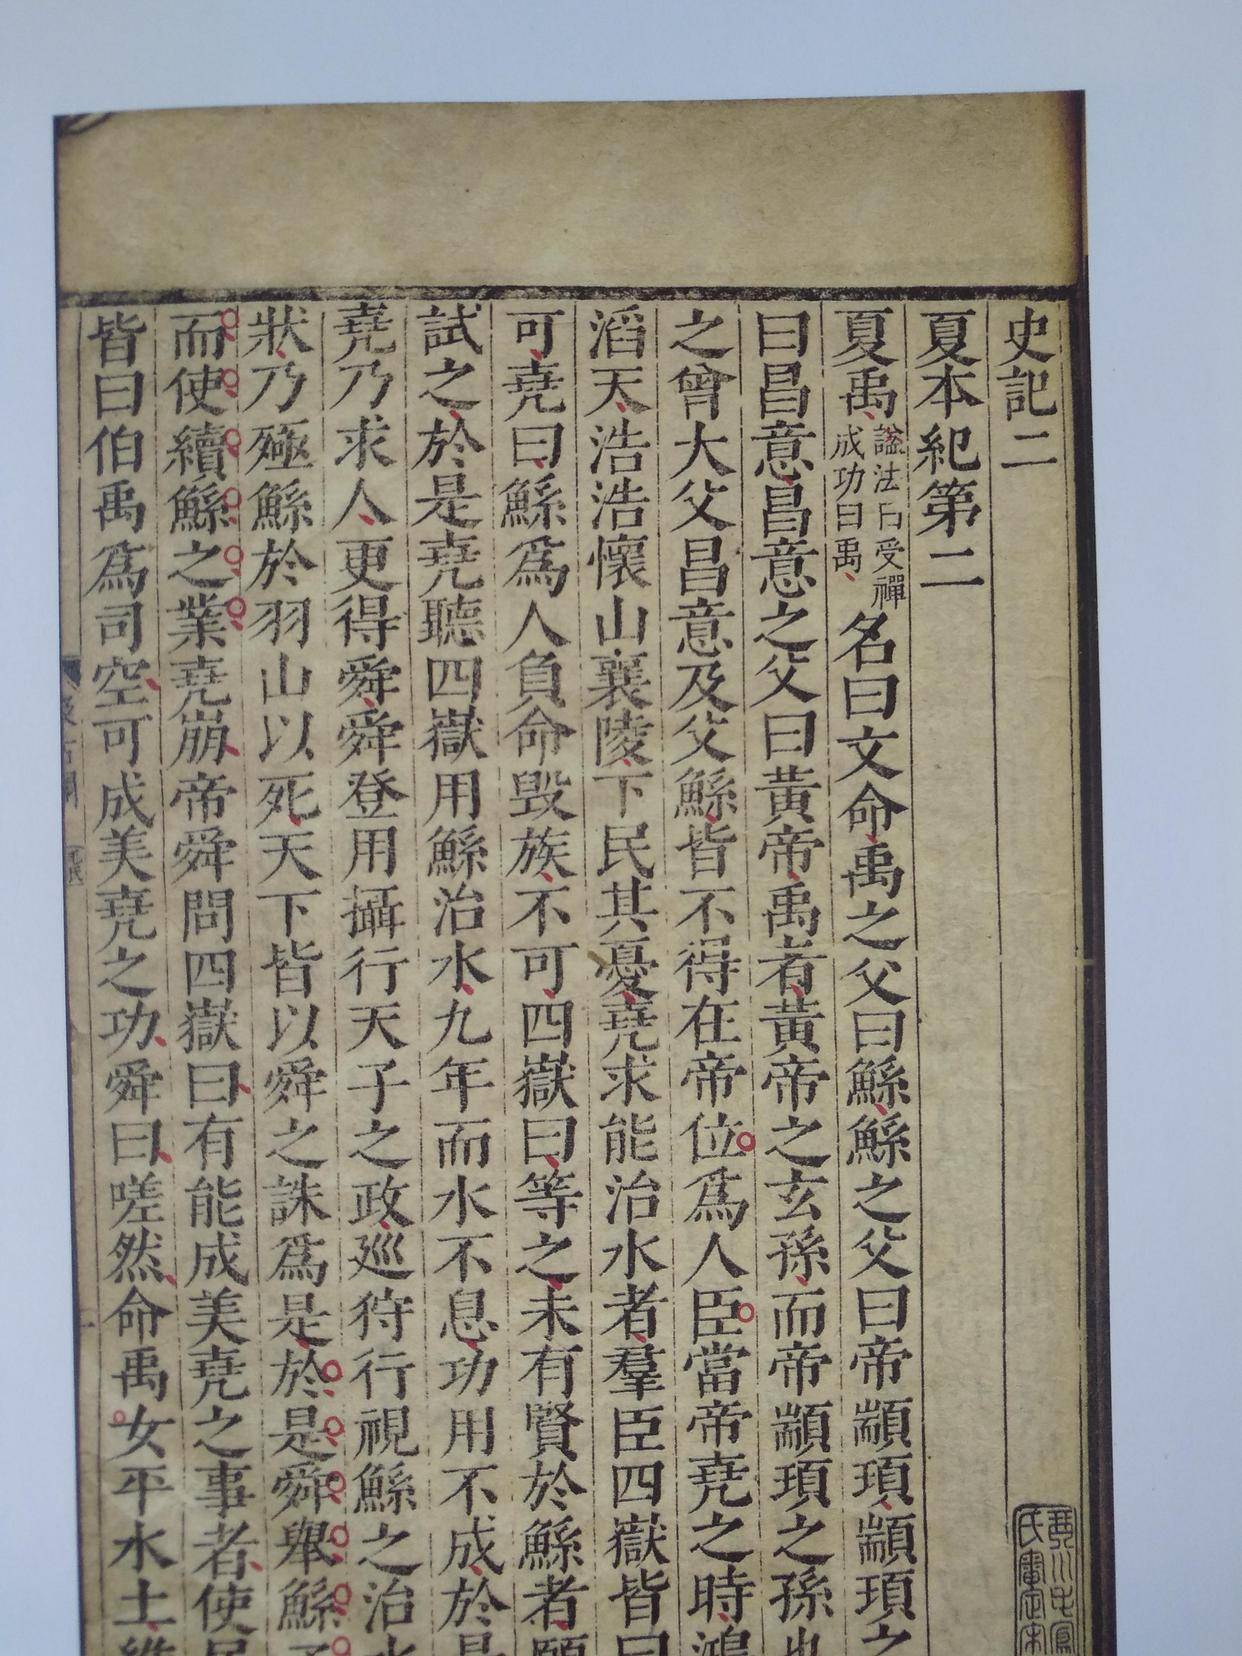 史記二
夏本紀第二
夏禹
諡法曰受禪
成功曰禹
名曰文命禹之父曰鯀鯀之父曰帝顓頊顓頊之
曰昌意昌意之父曰黃帝禹者黃帝之玄孫而帝顓頊之孫也
之曾大父昌意及父鯀皆不得在帝位爲人臣當帝堯之時鴻
滔天浩浩懷山襄陵下民其憂堯求能治水者羣臣四嶽皆曰
可堯曰鯀爲人負命毀族不可四嶽曰等之未有賢於鯀者願
試之於是堯聽四嶽用鯀治水九年而水不息功用不成於是
堯乃求人更得舜舜登用攝行天子之政巡狩行視鯀之治水
狀乃殛鯀於羽山以死天下皆以舜之誅爲是於是舜舉鯀子
而使續鯀之業堯崩帝舜問四嶽曰有能成美堯之事者使居
皆曰伯禹爲司空可成美堯之功舜曰嗟然命禹女平水土維